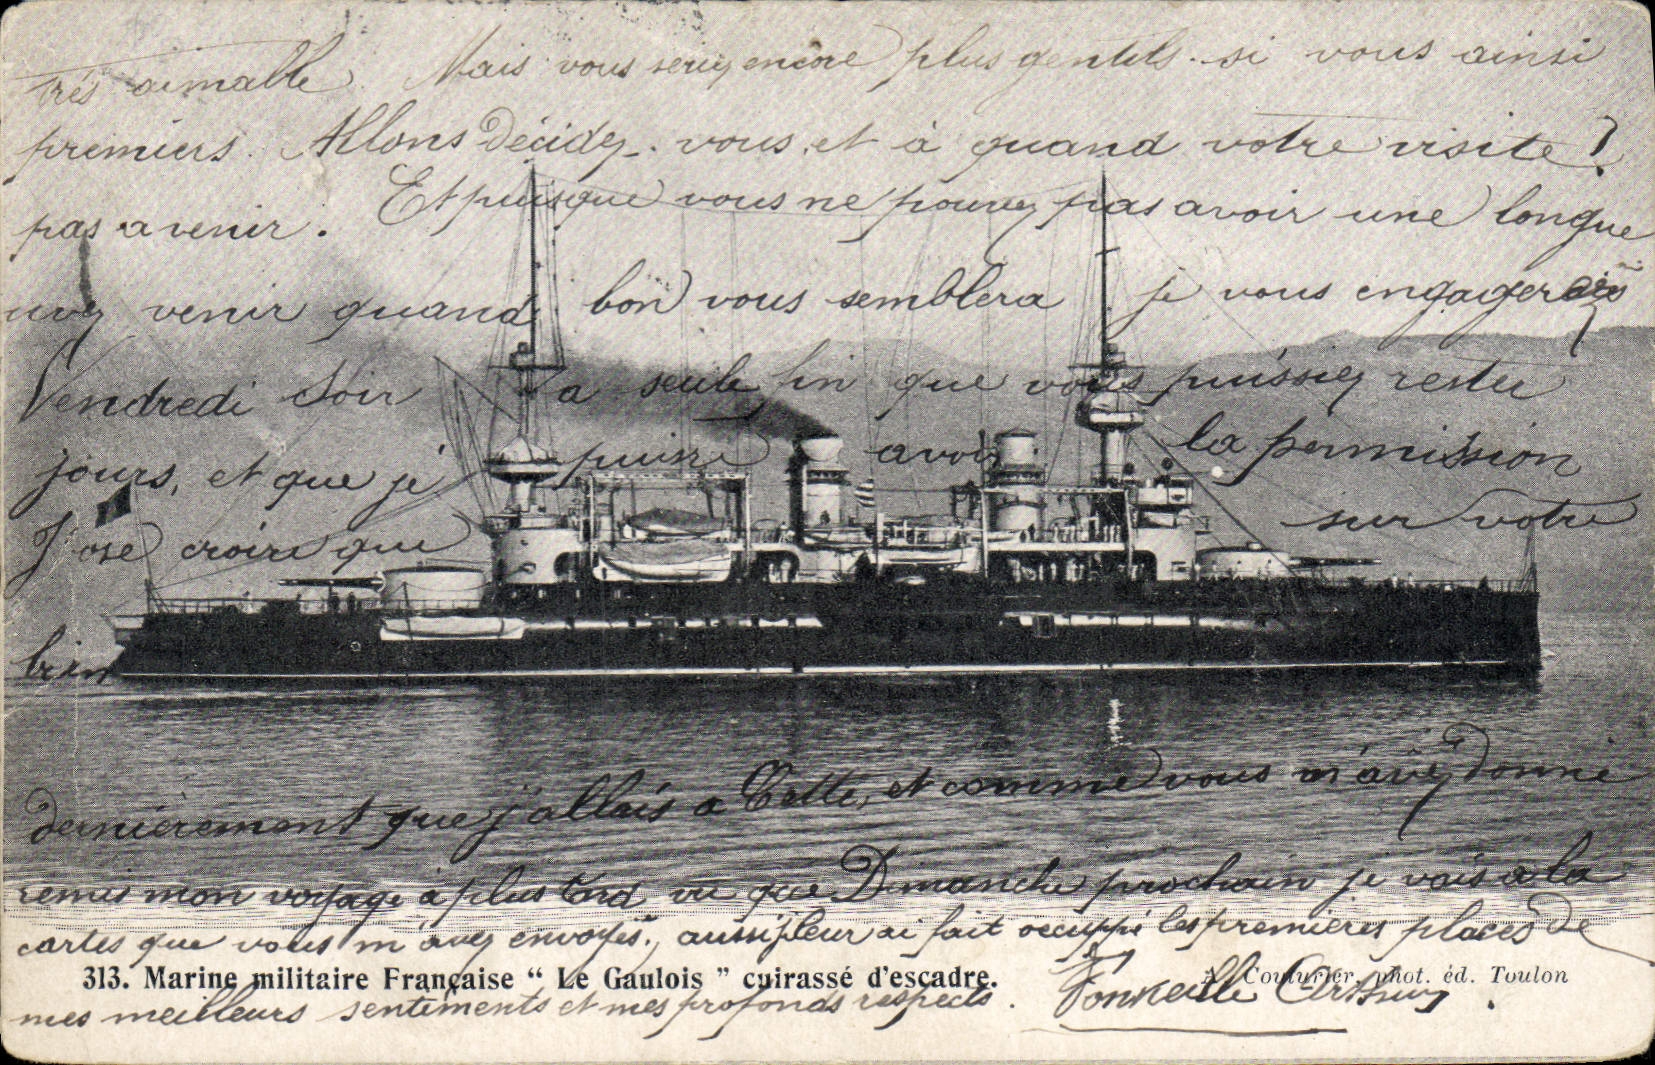 très aimable Mais vous seriez encore plus gentils si vous ainsi
premiers. Allons Décidez-vous et à quand votre visite?
pas a venir. Et puisque vous ne pouvez pas avoir une longue
venir quand bon vous semblera je vous engagerais
Vendredi Soir a seule fin que vous puissiez rester
jours, et que je puisse avoir la permission
J'ose croire que sur votre
bien
dernièrement que j'allais a Cette, et comme vous m'avez donné
remis mon voyage à plus tard vu que Dimanche prochain je vais a la
cartes que vous m'avez envoyés, aussi leur ai fait occuppé les premières places de
313. Marine militaire Française “ Le Gaulois ” cuirassé d'escadre.
A. Couturier, phot. éd. Toulon
mes meilleurs sentements et mes profonds respects.